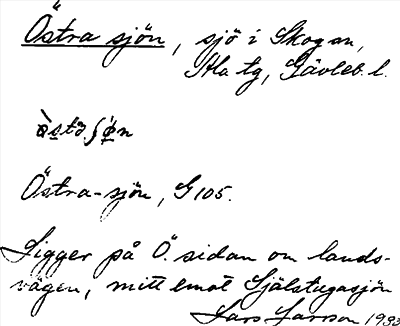 Östra sjön, sjö i Skogan,
Ala tg, Gävleb. l.
Östra-sjön, G 105.
Ligger på Ö. sidan om lands-
vägen, mitt emot Själstugasjön
Lars Larsson 1933